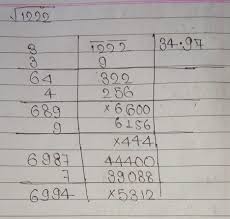 √1222
3 1222 34.97
3 9
64 322
4 256
689 ×6600
9 6156
×444
6987 44400
7 39088
6994 ×5312